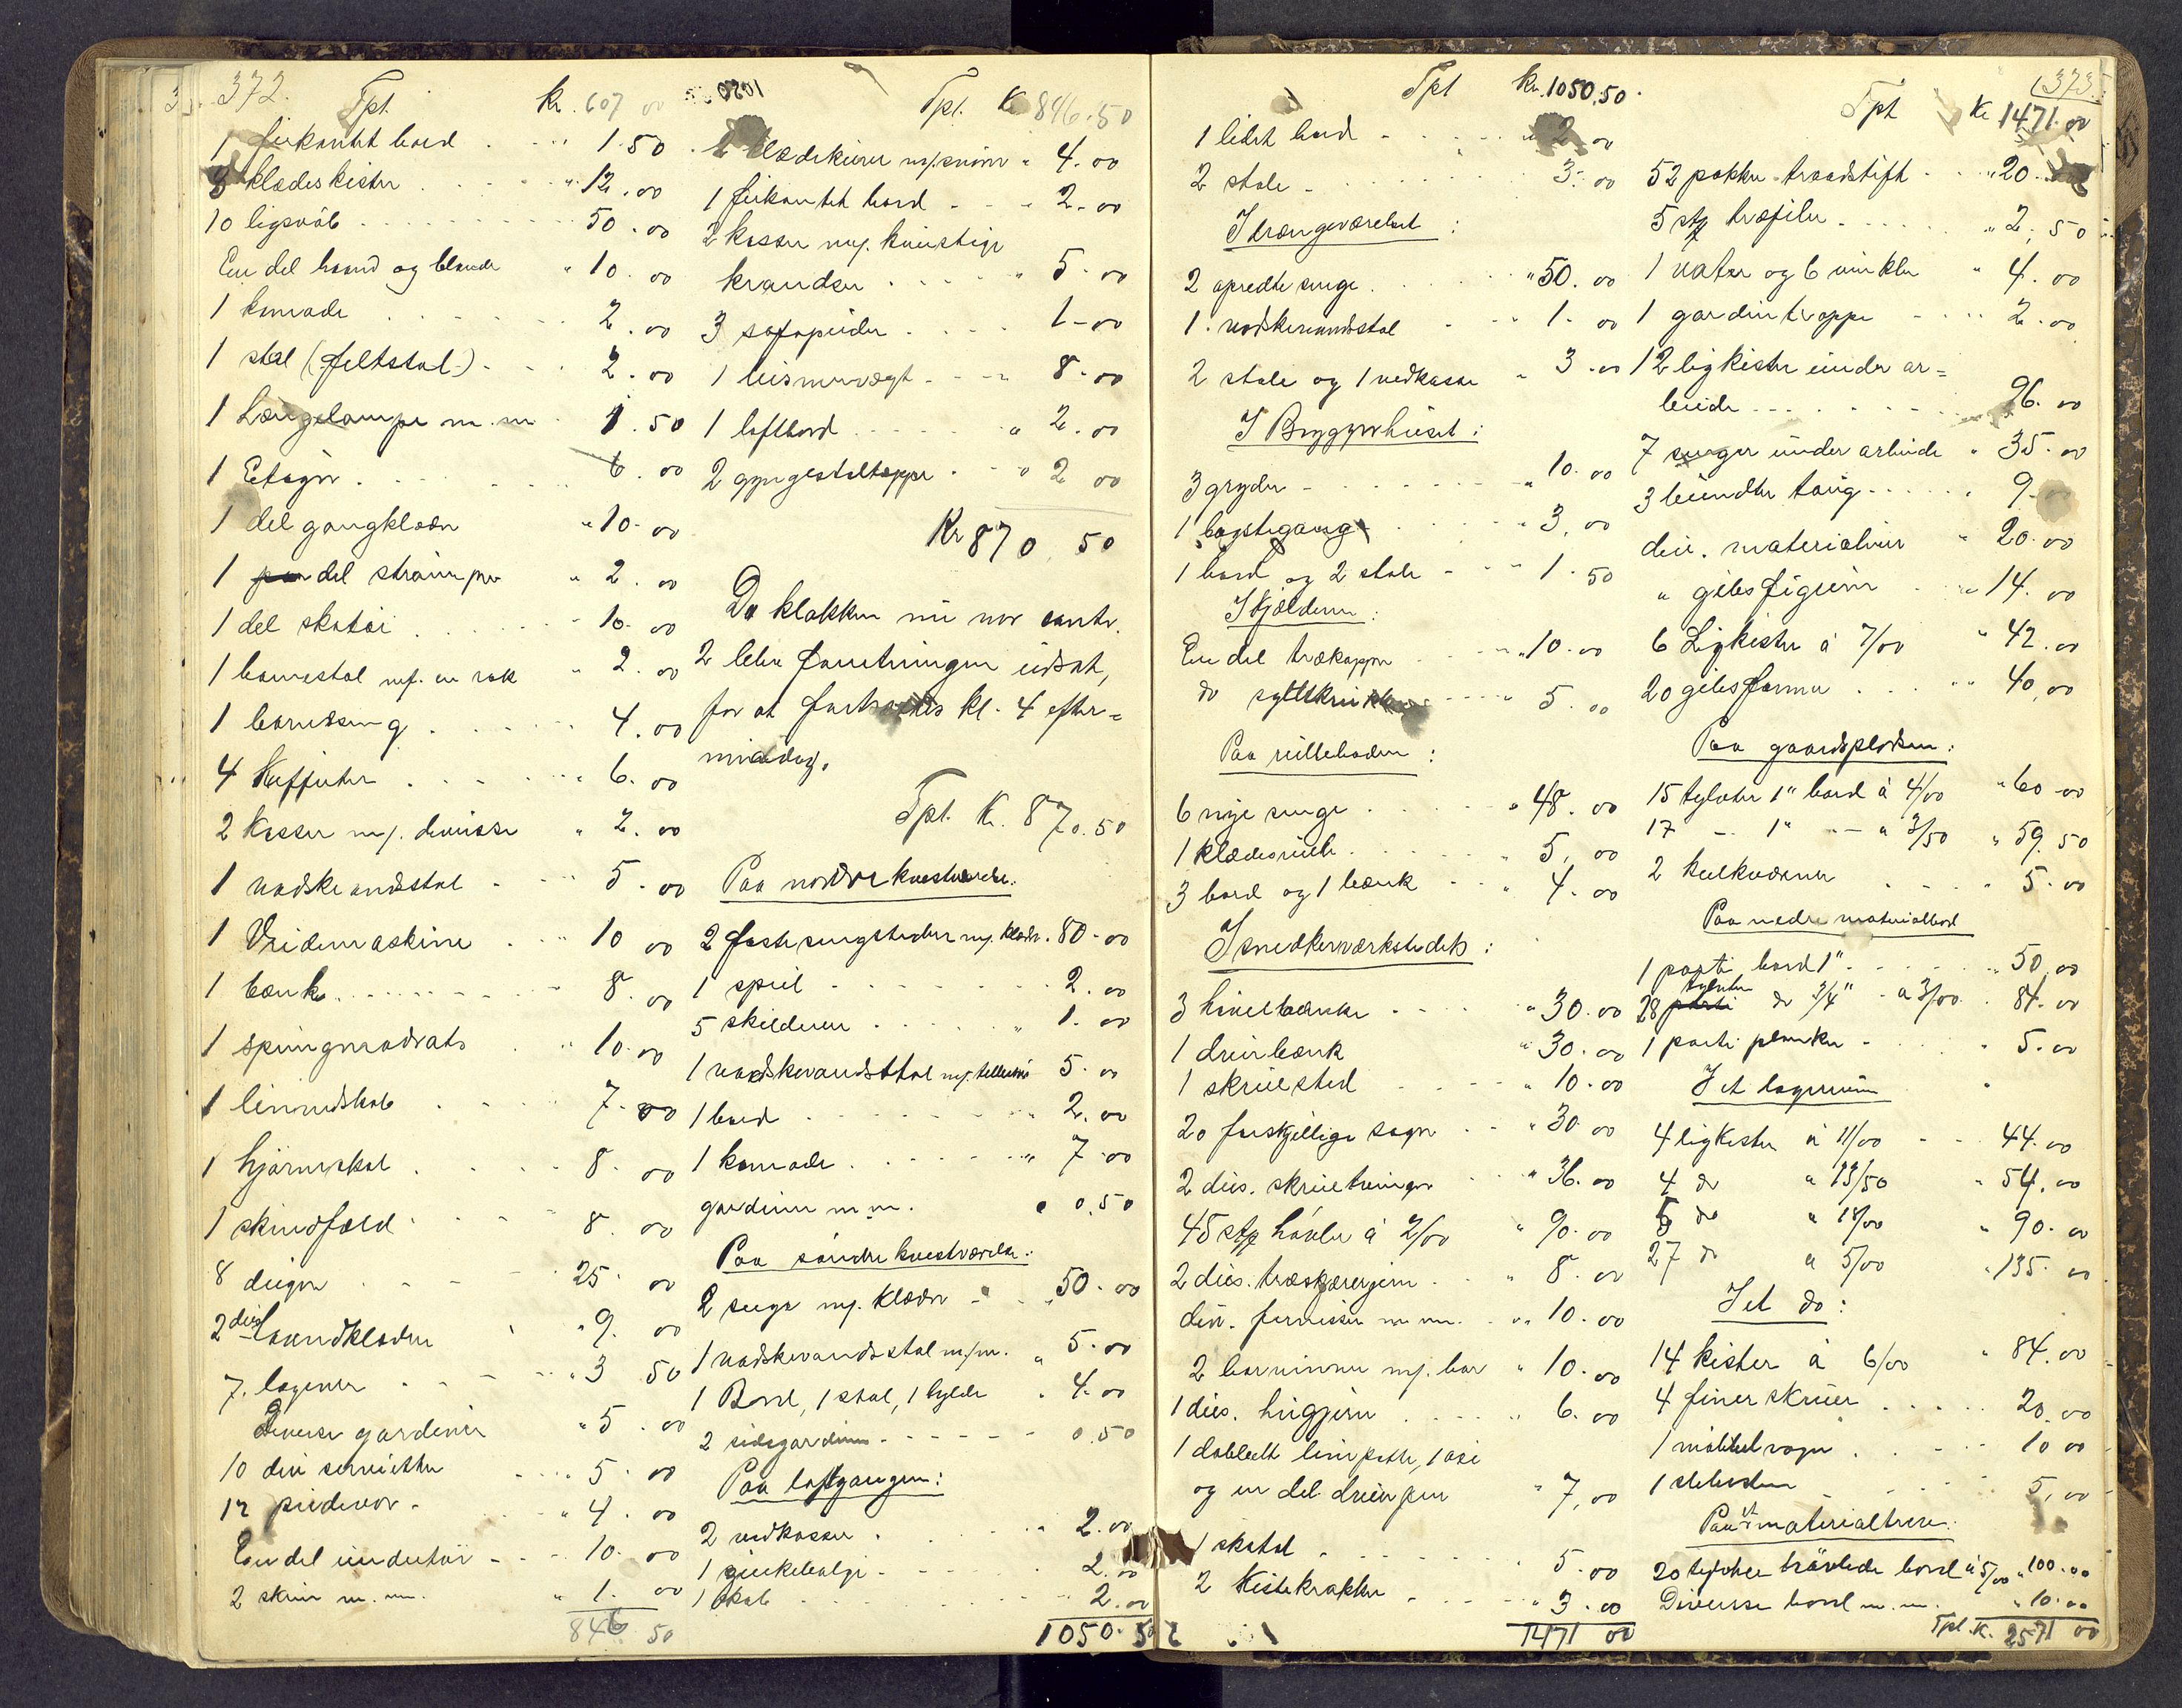 372.
Tpt. Kr. 607 00
1 firkantet bord 1.50
3 klædeskister 12.00
10 ligsvøb 50.00
En del baand og blonder 10.00
1 komode 2.00
1 stol (feltstol) 2.00
1 Længelampe m.m 1.50
1 Etagér 6.00
1 del gangklæder 10.00
1 del strømper 2.00
1 del skotøi 10.00
1 barnestol m/. en sæk 2.00
1 barneseng 4.00
4 Kufferter 6.00
2 Kasser m/. diverse 2.00
1 vadskevandsstol 5.00
1 Vridemaskine 10 00
1 bænk 8.00
1 springmadrats 10.00
1 linnedskab 7.00
1 hjørneskab 8.00
1 skindfæld 8.00
8 duger 25.00
2 dus haandklæder 9.00
7. lagener 3 50
Diverse gardiner 5.00
10 div servietter 5.00
12 pudevar 4.00
En del undertøi 10.00
2 skrin m.m. 1.00
846 50
1020
Tpt. K 846.50
klædekurve m/. snører 4.00
1 firkantet bord 2.00
2 kasser m/. kunstige
krandser 5.00
3 sofaputer 1-00
1 bismervægt 8.00
1 loftbord 2.00
2 gyngestoltepper 2 00
Kr 870.50
Da klokken nu var omtr.
2 blev forretningen udsat,
for at fortsættes kl. 4 efter=
middag.
Tpt. K. 870.50
Paa nordre kvistværelse:
2 faste sengesteder m/. klæder 80.00
1 speil 2.00
5 skilderier 1.00
1 vadskevandsstol m/. tilbehør 5.00
1 bord 2.00
1 komode 7.00
gardiner m.m. 0.50
Paa søndre kvistværelse:
2 senge m/. klæder 50.00
1 vadskevandsstol m/m. 5.00
1 Bord, 1 stol, 1 hylde 4.00
2 sidegardiner 0.50
Paa loftgangen:
2 vedkasser 2.00
1 zinkebalje 2.00
1 skab 2.00
1050.50
373.
Tpt Kr. 1050.50
1 lidet bord 2.00
2 stole 3.00
I drengeværelset:
2 opredte senge 50.00
1 vadskevandsstol 1.00
2 stole og 1 vedkasse 3.00
I Bryggerhuset:
3 gryder 10.00
1 bagstegang 3.00
1 bord og 2 stole 1.50
I Kjælderen:
En del trækopper 10.00
do syltekrukker 5.00
Paa rulleboden:
6 nye senge 48.00
1 klædesrulle 5.00
3 bord og 1 bænk 4.00
I snedkerværkstedet:
3 høvelbænke 30.00
1 dreiebænk 30.00
1 skruested 10.00
20 forskjellige sager 30.00
2 dus. skruetvinger 36.00
45 stk høvler á 2/00 90.00
2 dus. træskjærerjern 8.00
div. fernisser m.m. 10.00
2 borvinner m/. bor 10.00
1 dus. hugjern 6.00
1 dobbelt limpotte, 1 øxe
og en del dreiejern 7.00
1 skatol 5.00
2 Kistekrakker 3.00
1471 00
Tpt Kr 1471.00
52 pakker traadstift 20.
5 stk træfiler 2.50
1 vater og 6 vinkler 4.00
1 gardintrappe 2.00
12 ligkister under ar=
beide 96.00
7 senger under arbeide 35.00
3 bundter tang 9.
div. materialier 20.00
" gibsfigurer 14.00
6 Ligkister á 7/00 42.00
20 gibsformer 40.00
Paa gaardspladsen:
15 tylvter 1" bord á 4/00 60.00
17 - 1" - á 3/50 59.50
2 kulkværner 5.00
Paa nedre materialbod
1 parti bord 1" 50.00
28 tylvter do 3/4" á 3/00 84.00
1 parti planker 5.00
I et lagerrum
4 ligkister á 11/00 44.00
4 do á 13/50 54.00
5 do á 18/00 90.00
27 do á 5/00 135.00
I et do:
14 kister á 6/00 84.00
4 finerskruer 20.00
1 møbelvogn 10 00
1 slebesten 5.00
Paa et materialtrev:
20 tylvter høvlede bord á 5/00 100.00
Diverse bord m.m. 10.00
Tpt. K. 2571 00